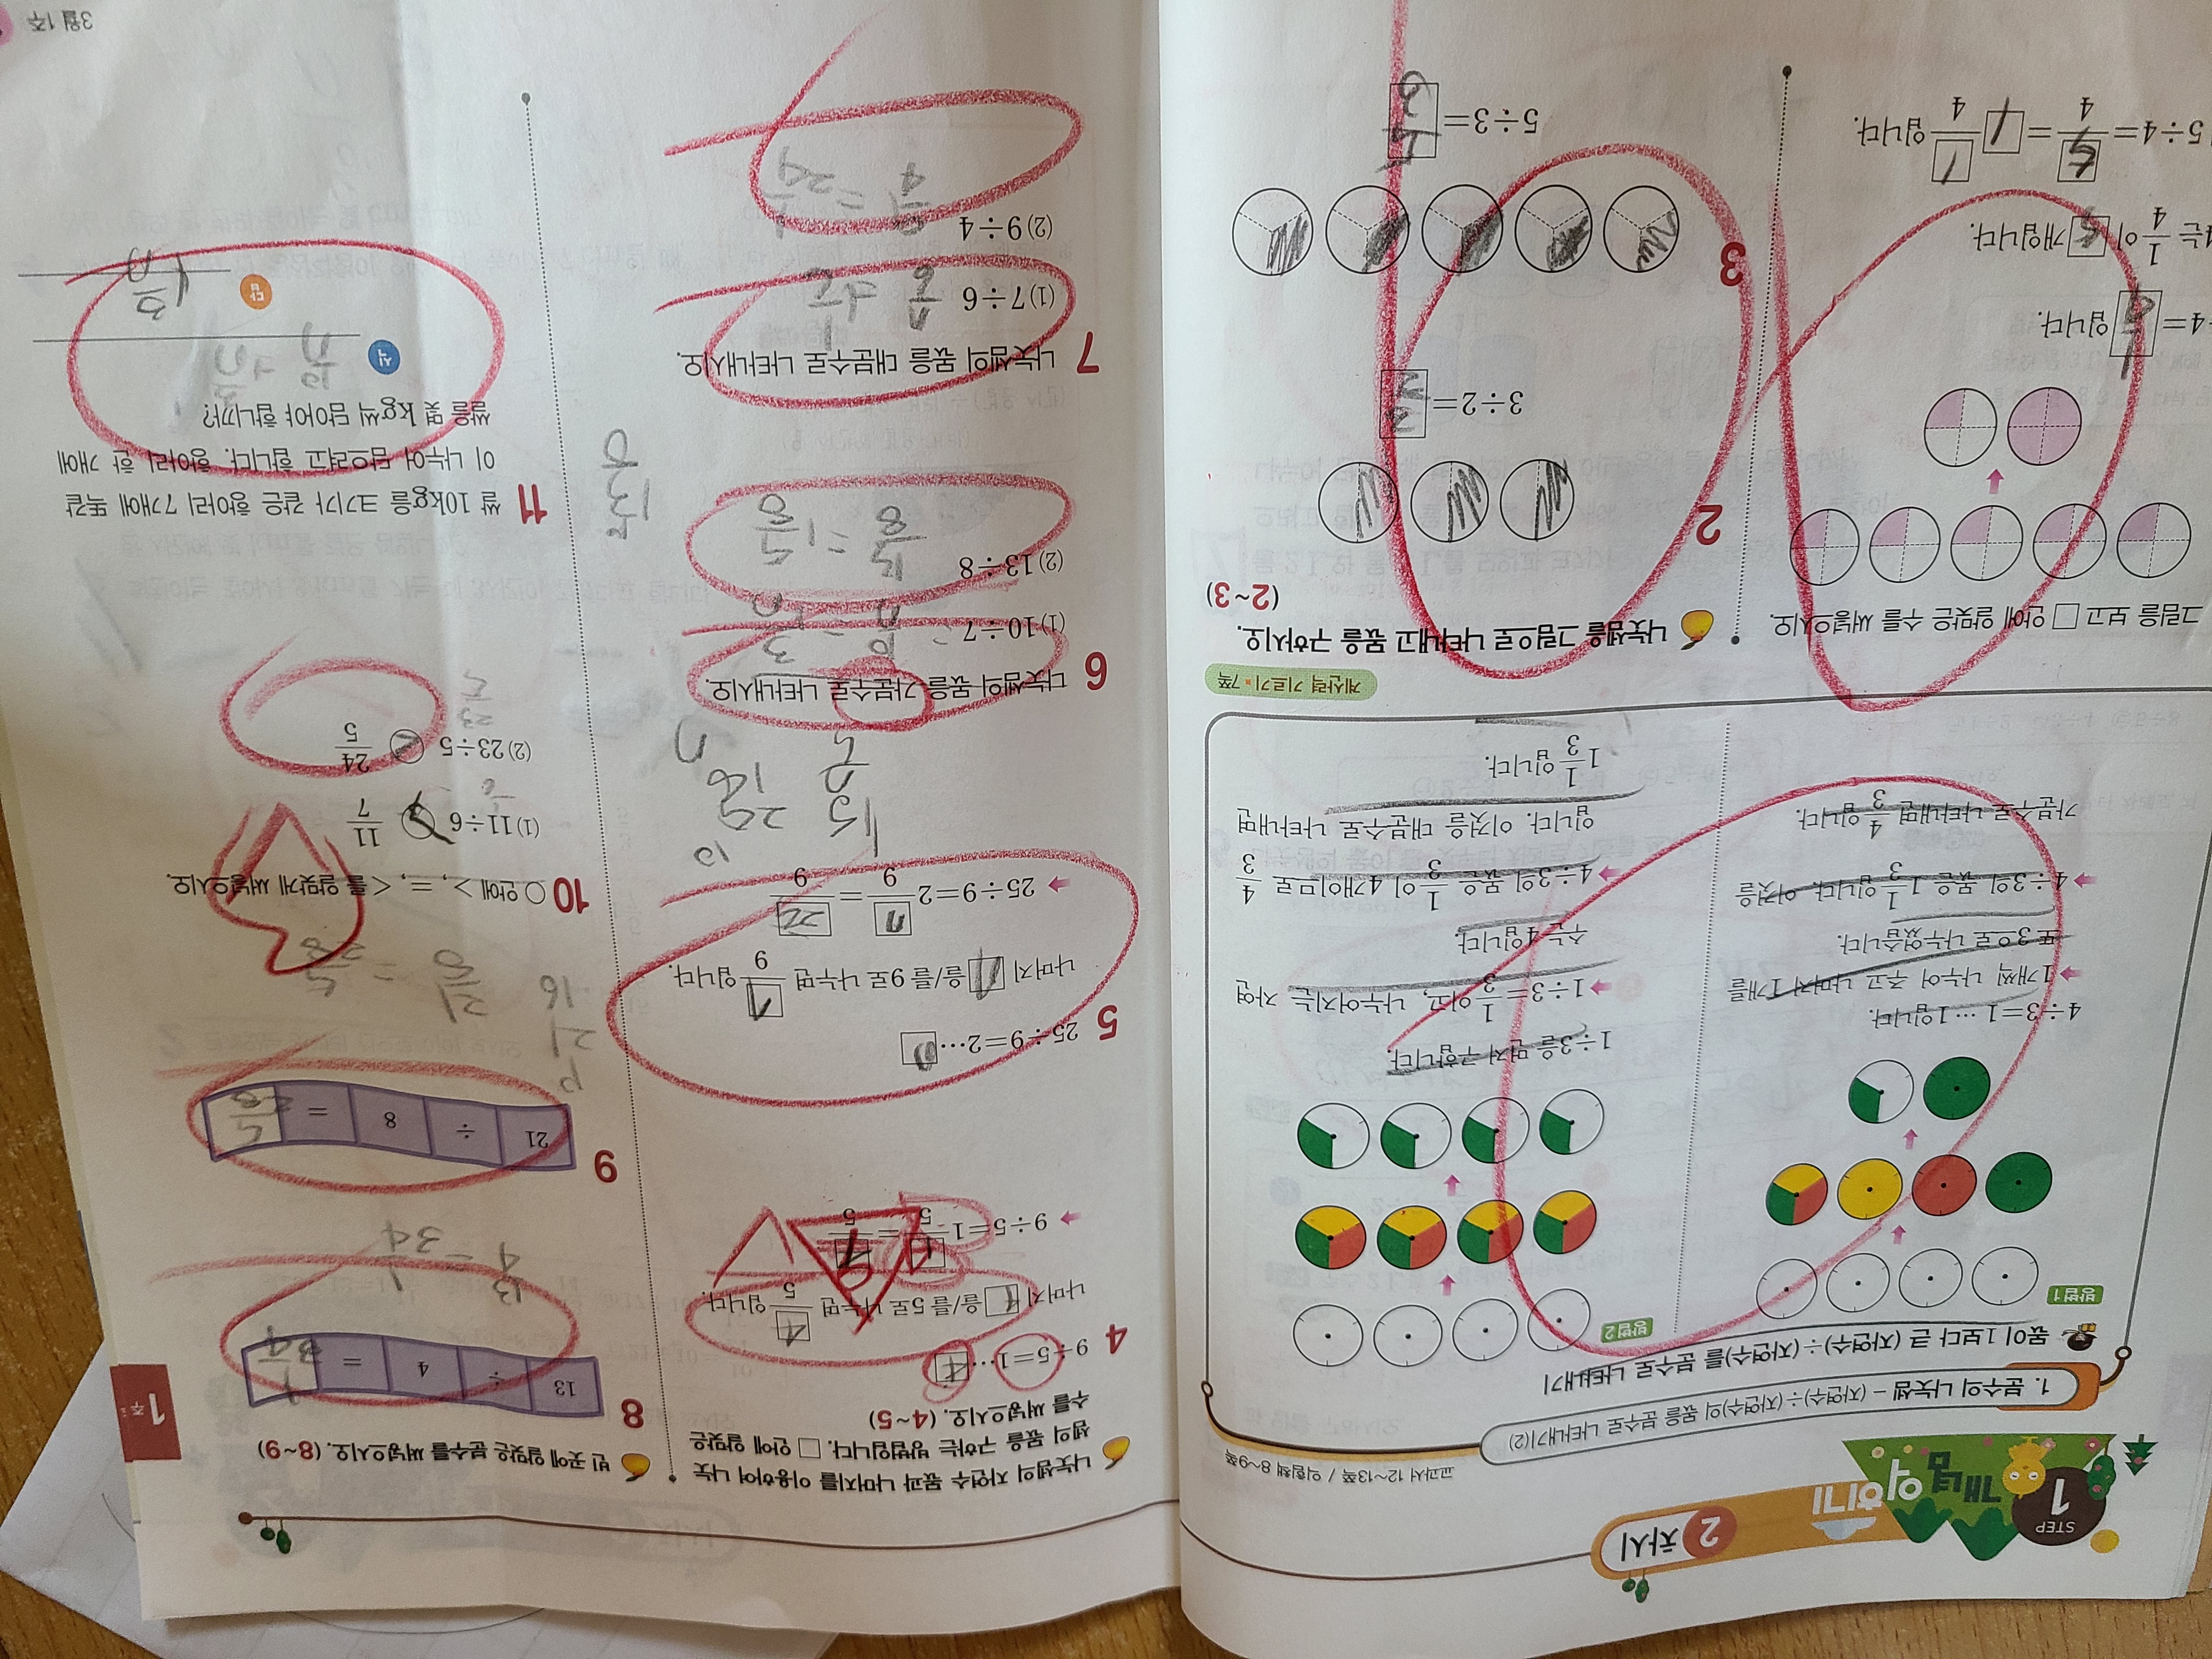 STEP 1 개념 익히기
2 차시
교과서 12~13쪽 / 익힘책 8~9쪽
1. 분수의 나눗셈 - (자연수)÷(자연수)의 몫을 분수로 나타내기(2)
몫이 1보다 큰 (자연수)÷(자연수)를 분수로 나타내기
방법 1
4÷3=1⋯1입니다.
➡ 1개씩 나누어 주고 나머지 1개를
또 3으로 나누었습니다.
➡ 4÷3의 몫은 1 1/3입니다. 이것을
가분수로 나타내면 4/3입니다.
방법 2
1÷3을 먼저 구합니다.
➡ 1÷3=1/3이고, 나누어지는 자연
수는 4입니다.
➡ 4÷3의 몫은 1/3이 4개이므로 4/3
입니다. 이것을 대분수로 나타내면
1 1/3입니다.
계산력 기르기 • 7쪽
그림을 보고 □ 안에 알맞은 수를 써넣으시오.
입니다.
는 1/4이 5개입니다.
5÷4=5/4=1 1/4입니다.
나눗셈을 그림으로 나타내고 몫을 구하시오.
(2~3)
2
3÷2=3/2
3
5÷3=5/3
나눗셈의 자연수 몫과 나머지를 이용하여 나눗
셈의 몫을 구하는 방법입니다. □ 안에 알맞은
수를 써넣으시오. (4~5)
4
9÷5=1⋯4
나머지 4을/를 5로 나누면 4/5입니다.
➡ 9÷5=1 /5= /5
5
25÷9=2⋯7
나머지 7을/를 9로 나누면 7/9입니다.
➡ 25÷9=2 7/9=25/9
6 나눗셈의 몫을 가분수로 나타내시오.
(1) 10÷7 = 10/7 = 1 3/7
(2) 13÷8
13/8 = 1 5/8
7 나눗셈의 몫을 대분수로 나타내시오.
(1) 7÷6 7/6 =
(2) 9÷4
9/4 = 2 1/4
빈 곳에 알맞은 분수를 써넣으시오. (8~9)
8
13 ÷ 4 = 3 1/4
13/4 = 3 1/4
9
21 ÷ 8 = 2 5/8
21/8 = 2 5/8
10 ○ 안에 >, =, <를 알맞게 써넣으시오.
(1) 11÷6 11/7
(2) 23÷5 < 24/5
23/5
11 쌀 10kg을 크기가 같은 항아리 7개에 똑같
이 나누어 담으려고 합니다. 항아리 한 개에
쌀을 몇 kg씩 담아야 합니까?
식 10/7
답 1 3/7
1주
3월 1주